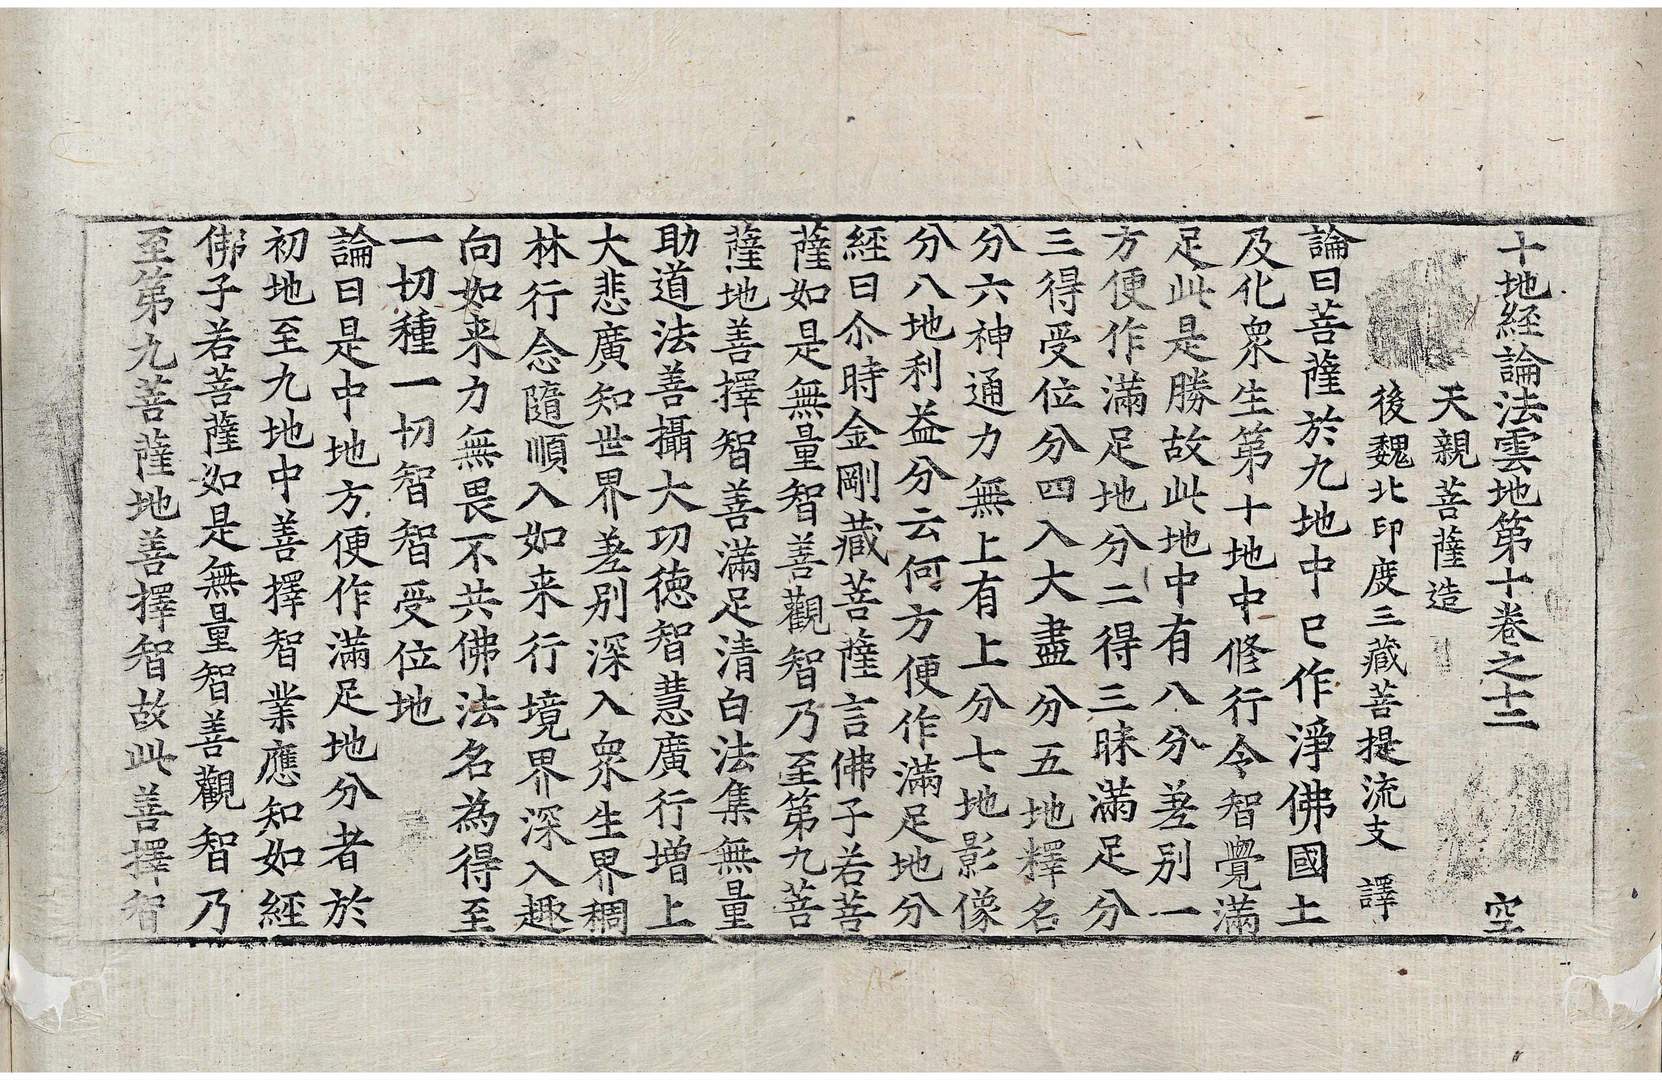 十地経論法雲地第十卷之十二 空
天親菩薩造
後魏北印度三藏菩提流支 譯
論曰菩薩於九地中已作淨佛國土
及化衆生第十地中修行令智覺滿
足此是勝故此地中有八分差別一
方便作滿足地分二得三昧滿足分
三得受位分四入大盡分五地釋名
分六神通力無上有上分七地影像
分八地利益分云何方便作滿足地分
經曰尒時金剛藏菩薩言佛子若菩
薩如是無量智善觀智乃至第九菩
薩地善擇智善滿足清白法集無量
助道法善攝大功徳智慧廣行増上
大悲廣知世界差别深入衆生界稠
林行念隨順入如来行境界深入趣
向如来力無畏不共佛法名為得至
一切種一切智智受位地
論曰是中地方便作滿足地分者於
初地至九地中善擇智業應知如經
佛子若菩薩如是無量智善觀智乃
至第九菩薩地善擇智故此善擇智